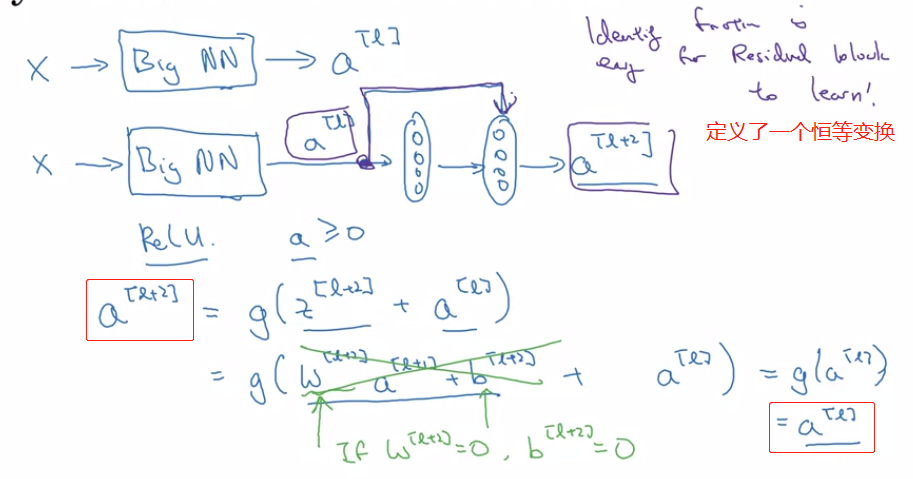 X → Big NN → a^[l]
Identity function is
easy for Residual block
to learn!
定义了一个恒等变换
X → Big NN → a^[l] → → a^[l+2]
ReLU. a ≥ 0
a^[l+2] = g(z^[l+2] + a^[l])
= g(W^[l+2] a^[l+1] + b^[l+2] + a^[l]) = g(a^[l])
= a^[l]
If W^[l+2] = 0, b^[l+2] = 0